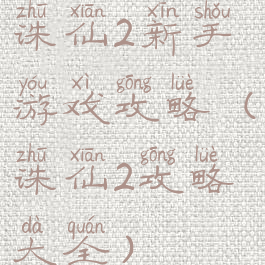 zhū xiān xīn shǒu
诛仙2新手
yóu xì gōng lüè
游戏攻略（
zhū xiān gōng lüè
诛仙2攻略
dà quán
大全）